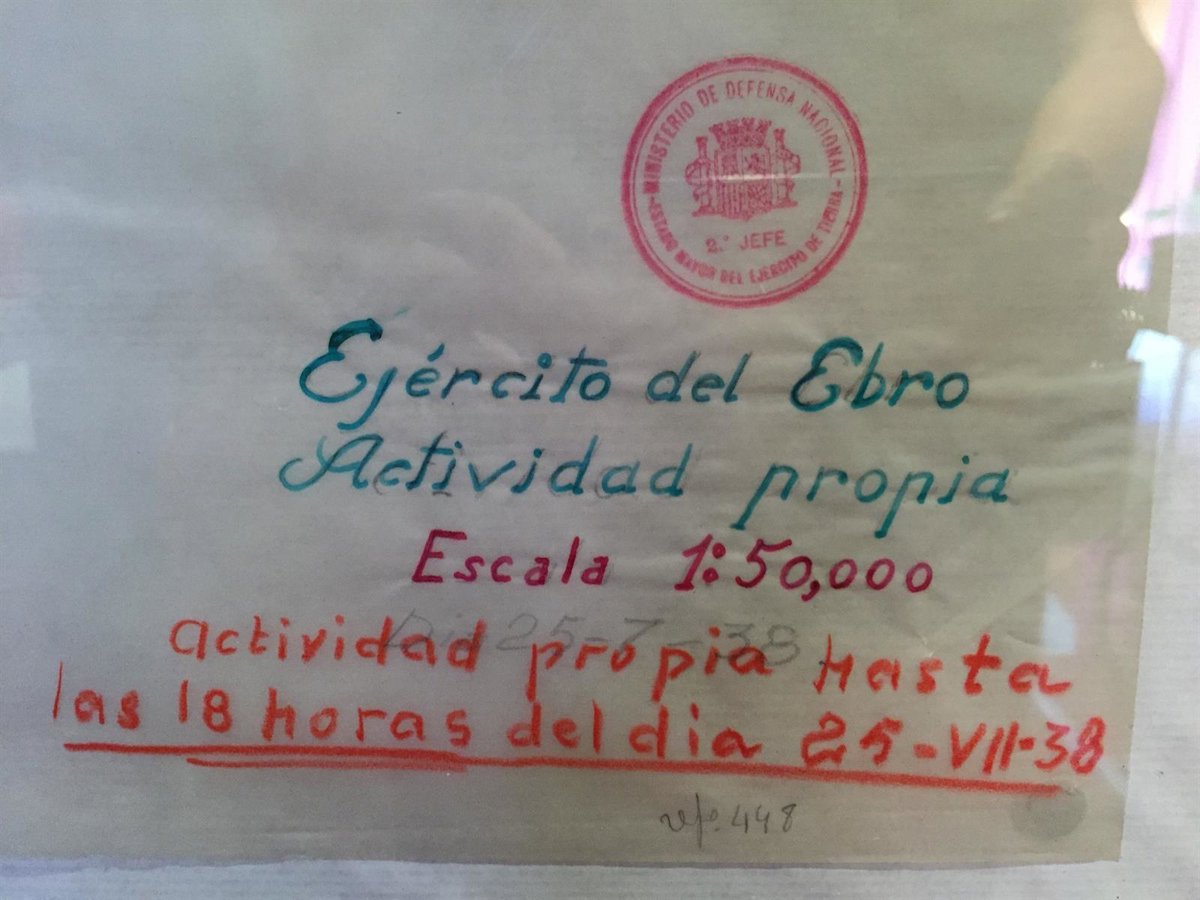 -MINISTERIO DE DEFENSA NACIONAL-
2.º JEFE
ESTADO MAYOR DEL EJÉRCITO DE TIERRA
Ejército del Ebro
Actividad propia
Escala 1:50,000
Dia 25-7-38
actividad propia Hasta
las 18 horas del dia 25-VII-38
448